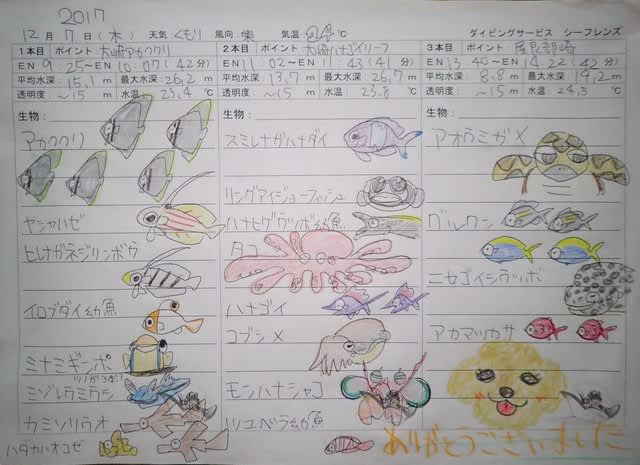 2017
12月7日(木) 天気 くもり 風向 東 気温 ℃ ダイビングサービス シーフレンズ
1本目 ポイント 大崎アカククリ
EN 9:25~EN 10:07 (42分)
平均水深: 15.1m 最大水深: 26.2m
透明度: ~15m 水温: 23.4℃
生物:
アカククリ
ヤシャハゼ
ヒレナガネジリンボウ
イロブダイ幼魚
ミナミギンポ
ミゾレウミウシ
カミソリウオ
ハダカハオコゼ
2本目 ポイント 大崎ハナゴイリーフ
EN 11:02~EN 11:43 (41分)
平均水深: 13.7m 最大水深: 26.7m
透明度: ~15m 水温: 23.8℃
生物:
スミレナガハナダイ
リングアイジョーフィッシュ
ハナヒゲウツボ幼魚
タコ
ハナゴイ
コブシメ
モンハナシャコ
ツユベラ幼魚
3本目 ポイント 屋良部崎
EN 13:40~EN 14:22 (42分)
平均水深: 8.8m 最大水深: 19.2m
透明度: ~15m 水温: 24.3℃
生物:
アオウミガメ
グルクン
ニセゴイシウツボ
アカマツカサ
ありがとうございました